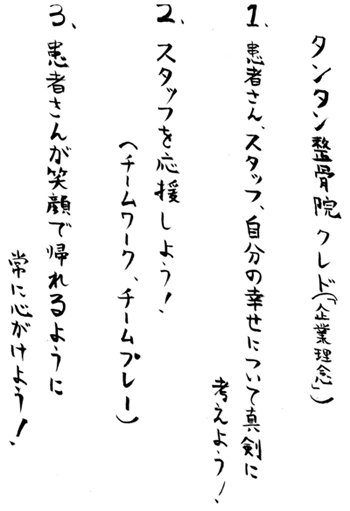 タンタン整骨院クレド(「企業理念」)
1、患者さん、スタッフ、自分の幸せについて真剣に
考えよう!
2、スタッフを応援しよう!
(チームワーク、チームプレー)
3、患者さんが笑顔で帰れるように
常に心がけよう!